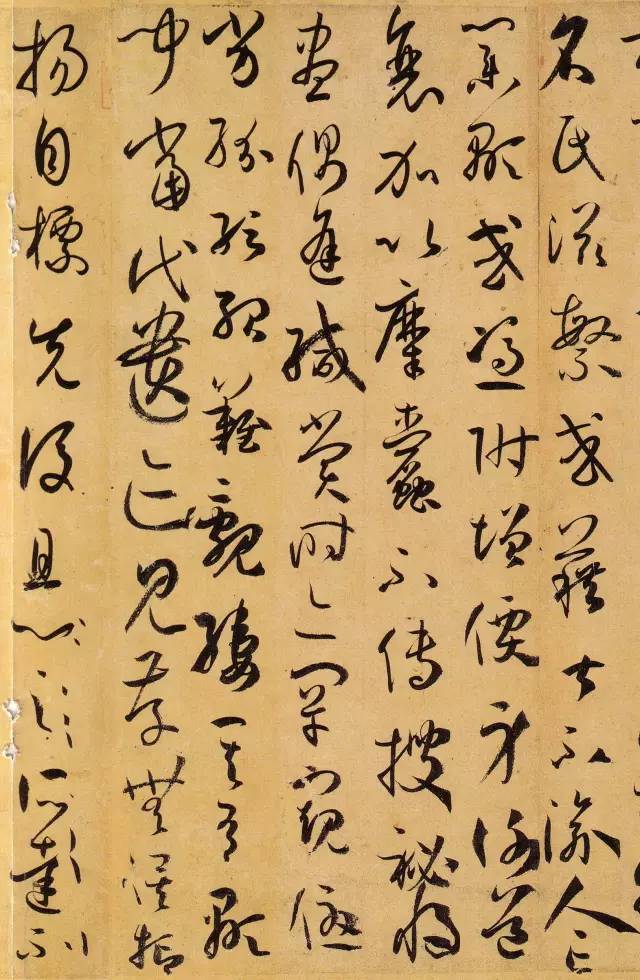 名氏滋繁或藉甚不渝人亡
業顯或憑附增價身謝道
衰加以糜蠹不傳搜秘將
盡偶逢緘賞時亦罕窺優
劣紛紜殆難覼縷其有顯
聞當代遺迹見存無俟抑
揚自標先後且六文之作肇自